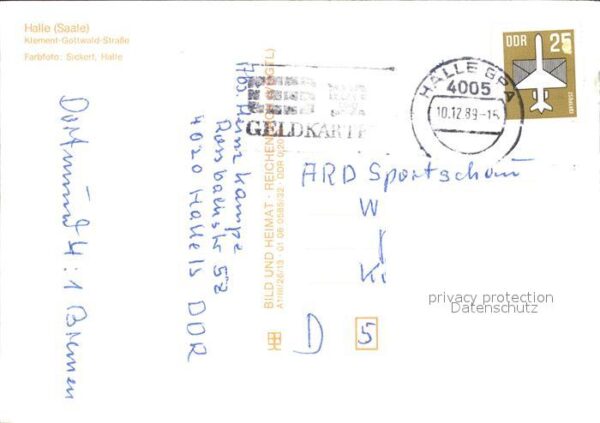 Halle (Saale)
Klement-Gottwald-Straße
Farbfoto: Sickert, Halle
Dortmund 4:1 Bremen
Heinz Kampe
4020 Halle 15 DDR
BILD UND HEIMAT · REICHENBACH (VOGTL)
A1/III/26/13 01 08 0585/32 DDR 0,20
GELDKARTE
HALLE GPA
4005
10.12.89-15
DDR 25
ARD Sportschau
W
Kö
D 5
privacy protection
Datenschutz